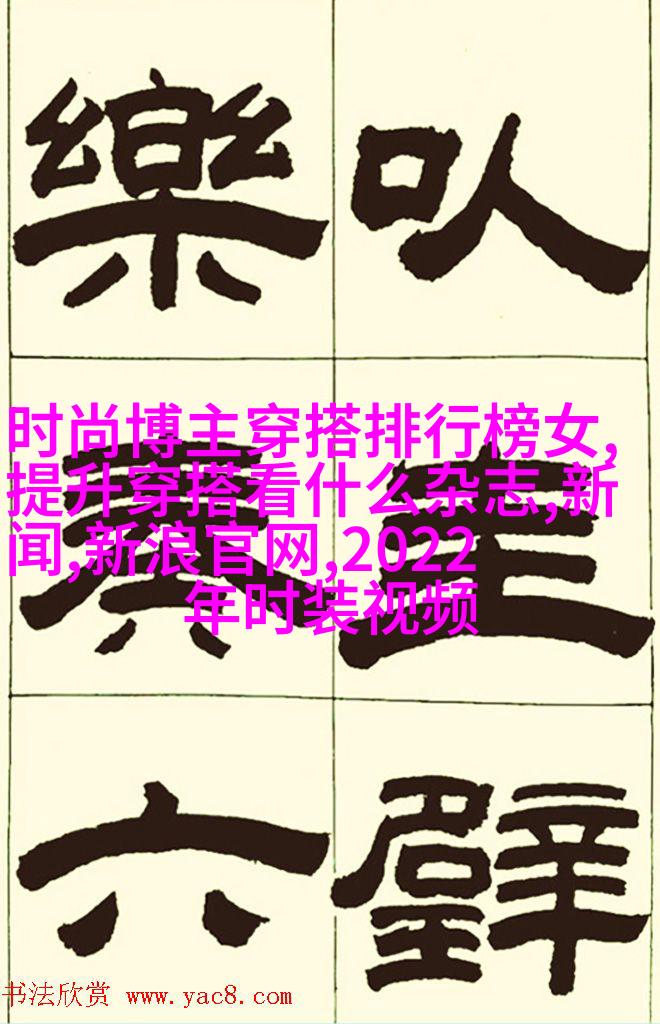 㕥圭璧
樂奏六
时尚博主穿搭排行榜女,
提升穿搭看什么杂志,新
闻,新浪官网,2022
年时装视频
书法欣赏 www.yac8.com